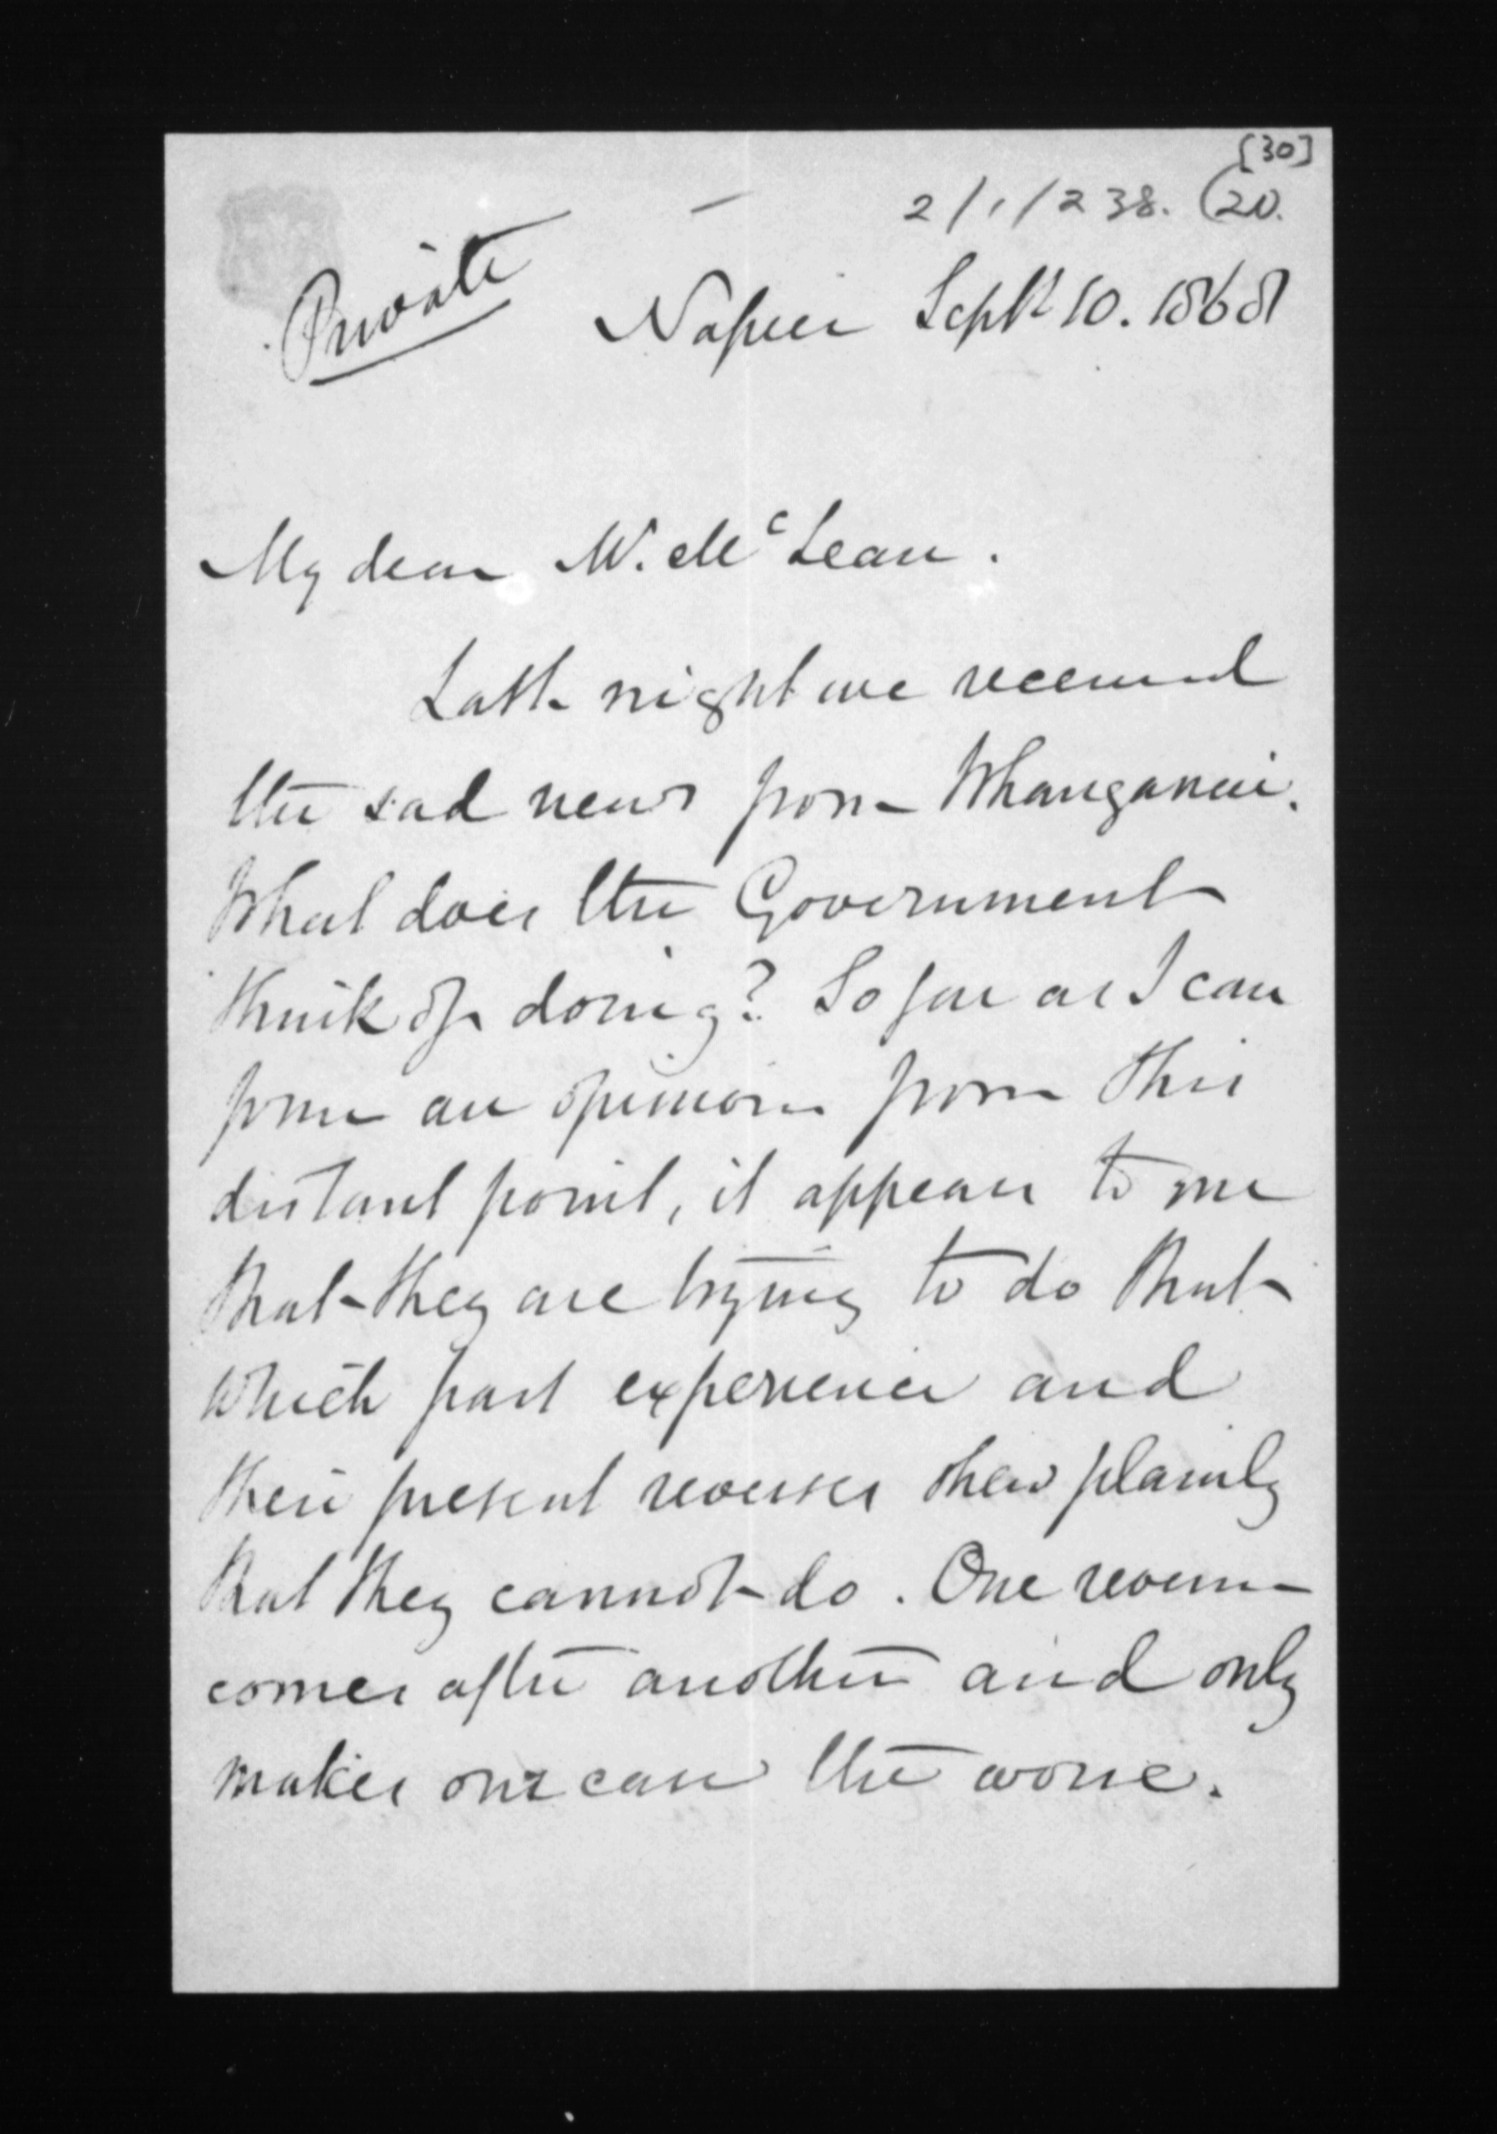 [30]
2/1/238. (20.
Private
Napier Septr 10. 1868
My dear Mr. McLean.
Last night we received
the sad news from Whanganui.
What does the Government
think of doing? So far as I can
form an opinion from this
distant point, it appears to me
that they are trying to do that
which past experience and
their present reverses shew plainly
that they cannot do. One reverse
comes after another and only
makes our case the worse.